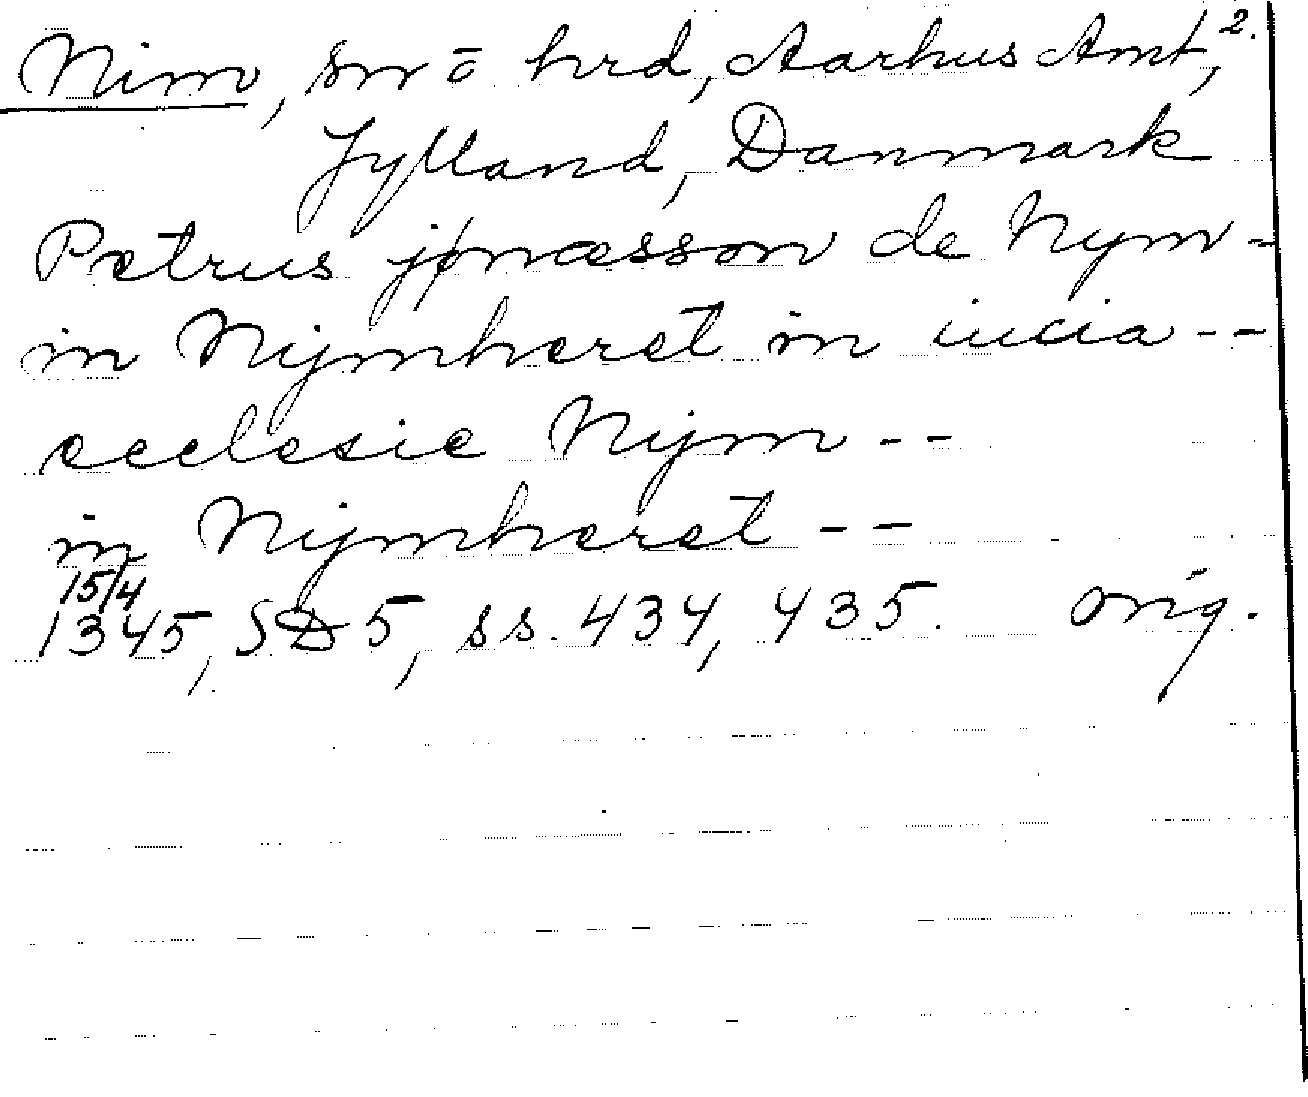 Nim, sn o hrd, Aarhus Amt, 2.
Jylland, Danmark
Petrus jønæsson de Nym -
in Nijmheret in iucia --
ecclesie Nijm --
in Nijmheret --
15/4
1345, SD 5, ss. 434, 435. orig.